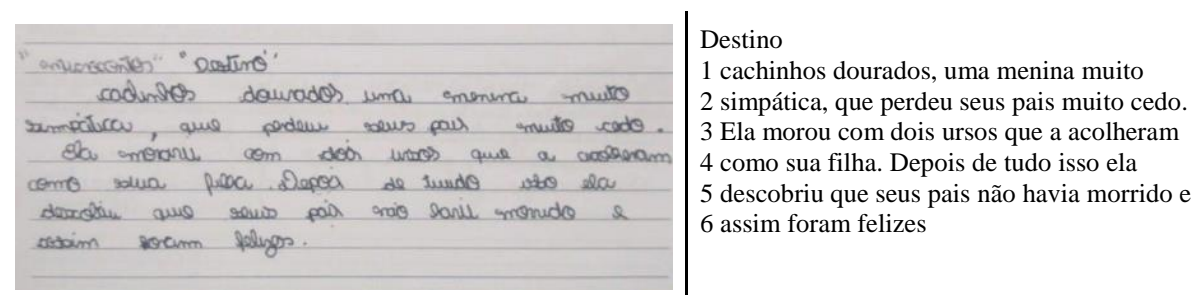 "microcontos" "Destino"
cachinhos dourados uma menina muito
simpática, que perdeu seus pais muito cedo.
Ela morou com dois ursos que a acolheram
como sua filha. Depois de tudo isso ela
descobriu que seus pais não havia morrido e
assim foram felizes.
Destino
1 cachinhos dourados, uma menina muito
2 simpática, que perdeu seus pais muito cedo.
3 Ela morou com dois ursos que a acolheram
4 como sua filha. Depois de tudo isso ela
5 descobriu que seus pais não havia morrido e
6 assim foram felizes